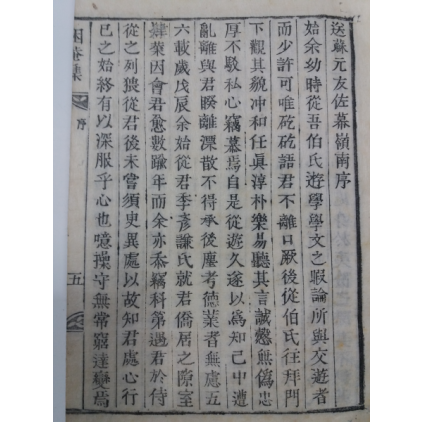 送蘇元友佐幕嶺南序
始余幼時從吾伯氏遊學學文之暇論所與交遊者
而少許可唯矻矻語君不離口厥後從伯氏往拜門
下觀其貌冲和任眞淳朴樂易聽其言誠懇無僞忠
厚不駁私心竊慕焉自是從遊久遂以爲知己中遭
亂離與君睽離漂散不得承後塵考德業者無處五
六載歲戊辰余始從君季彦謙氏就君僑居之隙室
肄業因會君愈數踰年而余亦忝竊科第遇君於侍
從之列猥從君後未嘗須臾異處以故知君處心行
已之始終有以深服乎心也噫操守無常窮達變焉
困菴集
序
五